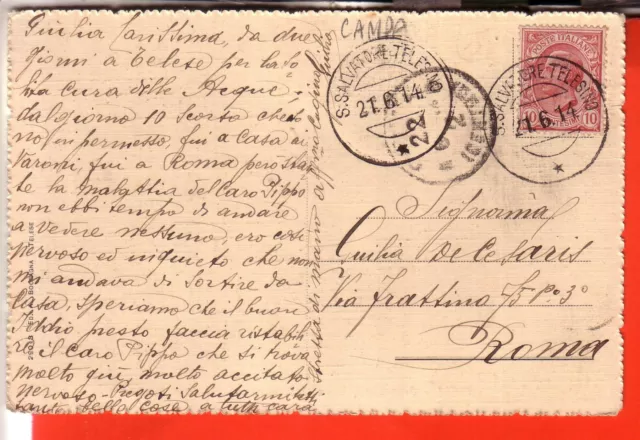 CAMPO
Giulia Carissima, da due
giorni a Telese per la so
lita cura delle Acque
dal giorno 10 Scorso che so
no in permesso, fui a Casa ai
fui a Roma però stan
te la malattia del Caro Pippo
non ebbi tempo di andare
a vedere nessuno, ero così
nervoso ed inquieto che non
mi andava di Sortire da
Casa, Speriamo che il buon
Iddio presto faccia ristabili
re il Caro Pippo che si trova
molto giù, molto accitato
nervoso - Pregoti Salutarmi tutti
tante belle cose a tutti cara
Stretta di mano
S. SALVATORE TELESINO
21.6.14
S. SALVATORE TELESINO
21.6.14
POSTE ITALIANE
10 10
Signorina
Giulia De Cesaris
Via Frattina 75 P° 3°
Roma